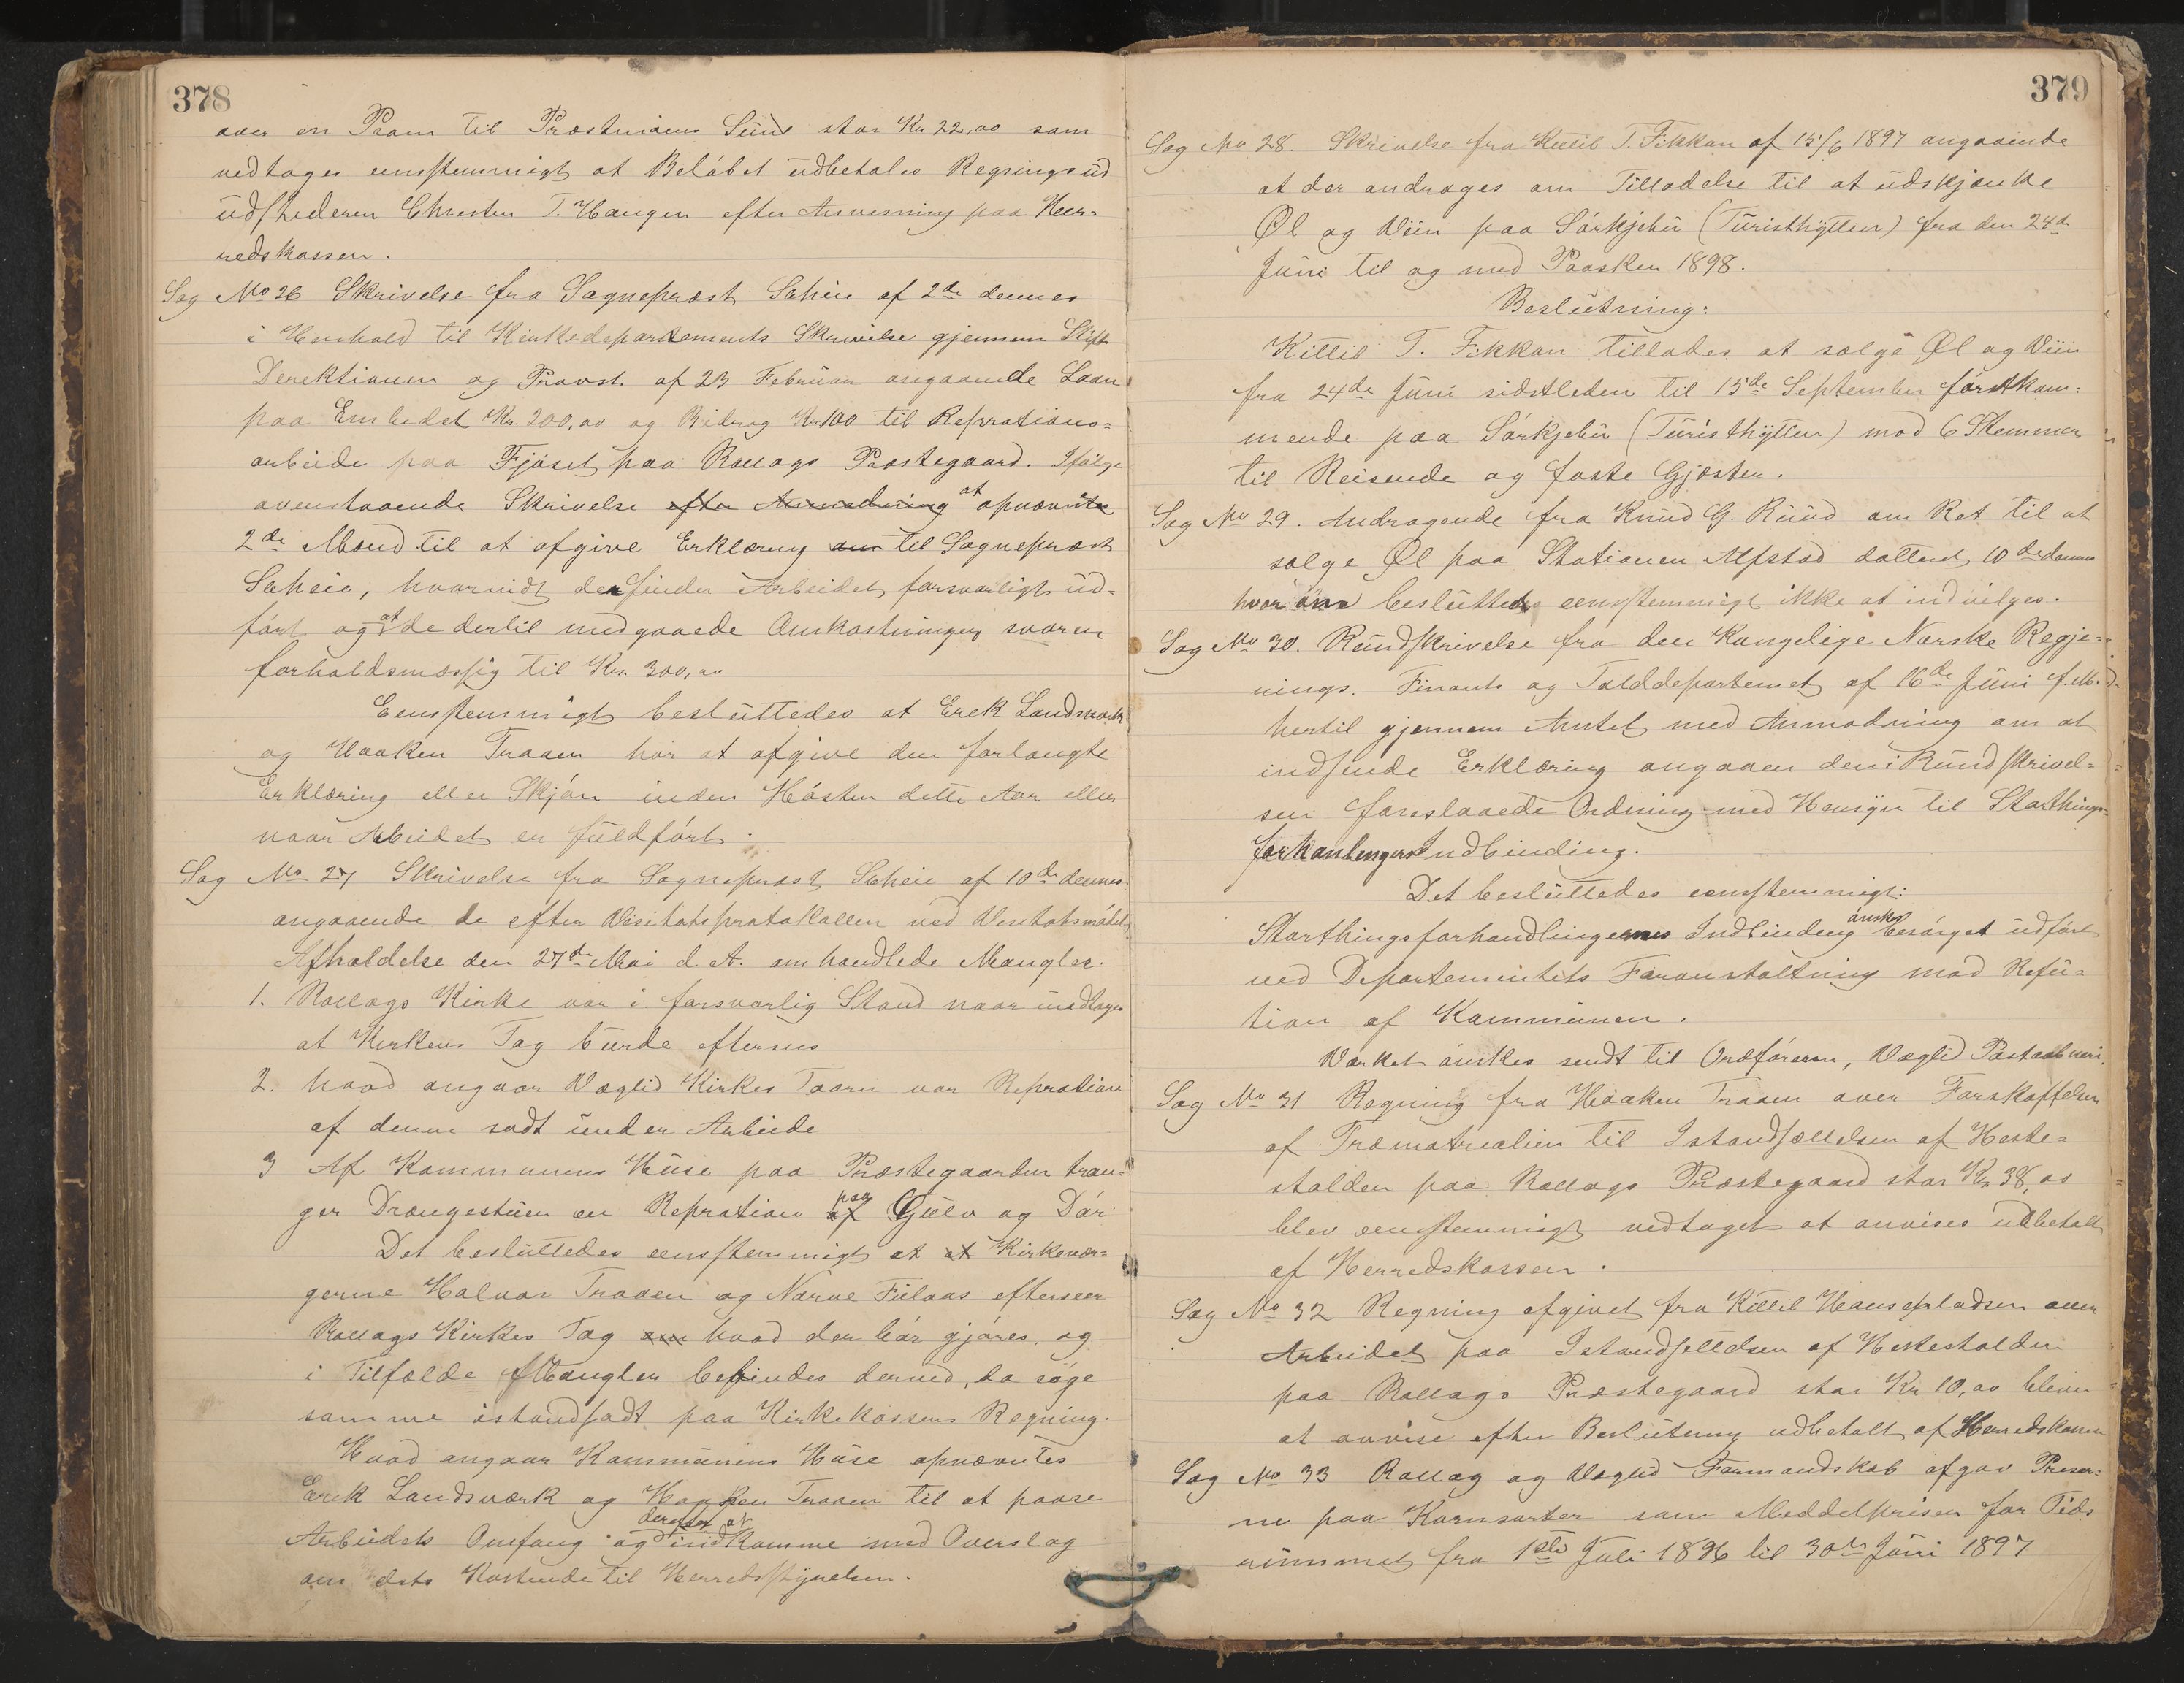 378
over en Pram til Præstmoens Sund stor Kr 22,00 som
vedtages eenstemmigt at Beløbet udbetales Regningsud
udstederen Christen T. Haugen efter Anvisning paa Her-
redskassen.
Sag No 26 Skrivelse fra Sognepræst Scheie af 2de dennes
i Henhold til Kirkedepartements Skrivelse gjennem Stifts
Derektionen og Provst af 23 Februar angaaende Laan
paa Embedst Kr. 200,00 og Bidrag Kr. 100 til Reprations-
arbeide paa Fjøset paa Rollags Præstegaard. Ifølge
ovenstaaende Skrivelse efter Anmodning at opnævntes
2de Mænd til at afgive Erklæring om til Sognepræst
Scheie, hvorvidt de finder Arbeidet forsvarligt ud-
ført og at de dertil medgaaede Omkostninger svarer
forholdsmæssig til Kr. 300,00
Eenstemmigt besluttedes at Erek Landsværk
og Haaken Traaen har at afgive den forlangte
Erklæring eller Skjøn inden Høsten dette Aar eller
naar Arbeidet er fuldført.
Sag No 27 Skrivelse fra Sognepræst Scheie af 10de dennes
angaaende de efter Visitatsprotokollen ved Visitatsmødets
Afholdelse den 27de Mai d. A. omhandlede Mangler.
1. Rollags Kirke var i forsvarlig Stand naar undtages
at Kirkens Tag burde eftersees
2. hvad angaar Væglid Kirkes Taarn var Repration
af denne sadt under Arbeide
3 Af Kommunens Huse paa Præstegaarden træn-
ger Drængestuen en Repration af paa Gulv og Dør
Det besluttedes eenstemmigt at at Kirkevær-
gerne Halvor Traaen og Narve Fulaas efterseer
Rollags Kirkes Tag om hvad der bør gjøres, og
i Tilfælde Mangler befindes derved, da søge
samme istandsadt paa Kirkekassens Regning.
Hvad angaar Kommunens Huse opnævntes
Erek Landsværk og Haaken Traaen til at paase
Arbeidets Omfang og derefter at indkomme med Overslag
om dets Kostende til Herredsstyrelsen.
379
Sag No 28. Skrivelse fra Kittil T. Fikkan af 15/6 1897 angaaende
at der andrages om Tilladelse til at udskjænke
Øl og Viin paa Sørkjebu (Turisthytten) fra den 24de
Juni til og med Paasken 1898.
Beslutning:
Kittil T. Fikkan tillades at sælge Øl og Viin
fra 24de Juni sidstleden til 15de September førstkom-
mende paa Sørkjebu (Turisthytten) mod 6 Stemmer
til Reisende og faste Gjæster.
Sag No 29. Andragende fra Knud G. Ruud om Ret til at
sælge Øl paa Stationen Alfstad datteret 10de dennes
hvor om besluttedes eenstemmigt ikke at indvilges.
Sag No 30. Rundskrivelse fra den Kongelige Norske Regje-
rings. Finants og Tolddepartemet af 16de Juni f. M.
hertil gjennem Amtet med Anmodning om at
indsende Erklæring angaaen den i Rundskrivel-
sen foreslaaede Ordning med Hensyn til Storthings-
forhandlingers Indbinding.
Det besluttedes eenstemmigt:
Storthingsforhandlingernes Indbinding ønskes besørget udført
ved Departementets Foranstaltning mod Refu-
tion af Kommunen.
Værket ønskes sendt til Ordføreren, Væglid Postaabneri.
Sag No 31 Regning fra Haaken Traaen over Forskaffelsen
af Træmatrialier til Istandsættelsen af Heste-
stalden paa Rollags Præstegaard stor Kr 38,00
blev eenstemmigt vedtaget at anvises udbetalt
af Herredskassen.
Sag No 32 Regning afgivet fra Kittil Hansepladsen over
Arbeidet paa Istandsettelsen af Hestestalden
paa Rollags Præstegaard stor Kr 10,00 bliver
at anvise efter Beslutning udbetalt af Herredskassen
Sag No 33 Rollag og Væglid Formandskab afgav Priser-
ne paa Kornsorter som Meddelprisen for Tids
rummet fra 1ste Juli 1896 til 30te Juni 1897